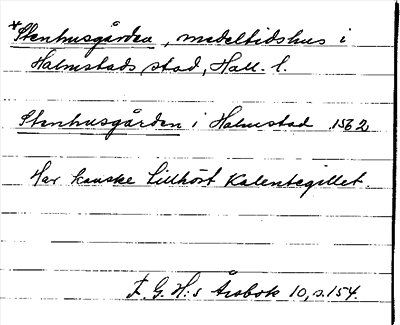 *Stenhusgården, medeltidshus i
Halmstads stad, Hall. l.
Stenhusgården i Halmstad 1562
Har kanske tillhört Kalentegillet.
F. G. H:s Årsbok 10, s. 154.